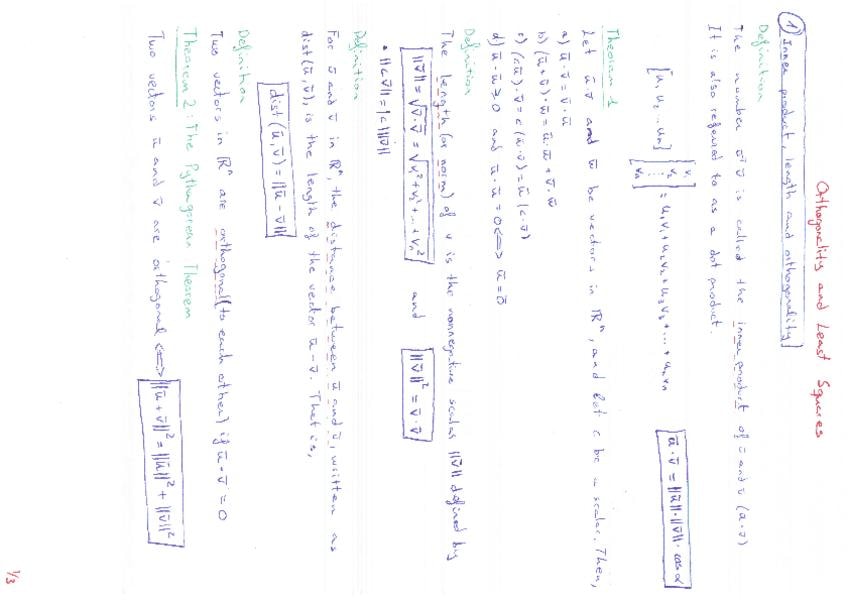 Orthogonality and Least Squares
① Inner product, length and orthogonality
Definition
The number ūᵀv̄ is called the inner product of ū and v̄ (ū·v̄)
It is also referred to as a dot product.
[u₁ u₂ ... uₙ] [v₁ v₂ ⋮ vₙ] = u₁v₁ + u₂v₂ + u₃v₃ + ... + uₙvₙ
ū·v̄ = ||ū||·||v̄||·cos α
Theorem 1
Let ū, v̄ and w̄ be vectors in ℝⁿ, and let c be a scalar. Then,
a) ū·v̄ = v̄·ū
b) (ū+v̄)·w̄ = ū·w̄ + v̄·w̄
c) (cū)·v̄ = c(ū·v̄) = ū(c·v̄)
d) ū·ū ≥ 0 and ū·ū = 0 <=> ū = 0̄
Definition
The length (or norm) of v is the nonnegative scalar ||v̄|| defined by
||v̄|| = √v̄·v̄ = √v₁²+v₂²+...+vₙ² and ||v̄||² = v̄·v̄
• ||cv̄|| = |c| ||v̄||
Definition
For ū and v̄ in ℝⁿ, the distance between ū and v̄, written as
dist(ū,v̄), is the length of the vector ū-v̄. That is,
dist(ū,v̄) = ||ū-v̄||
Definition
Two vectors in ℝⁿ are orthogonal (to each other) if ū·v̄ = 0
Theorem 2: The Pythagorean Theorem
Two vectors ū and v̄ are orthogonal <=> ||ū+v̄||² = ||ū||² + ||v̄||²
1/3